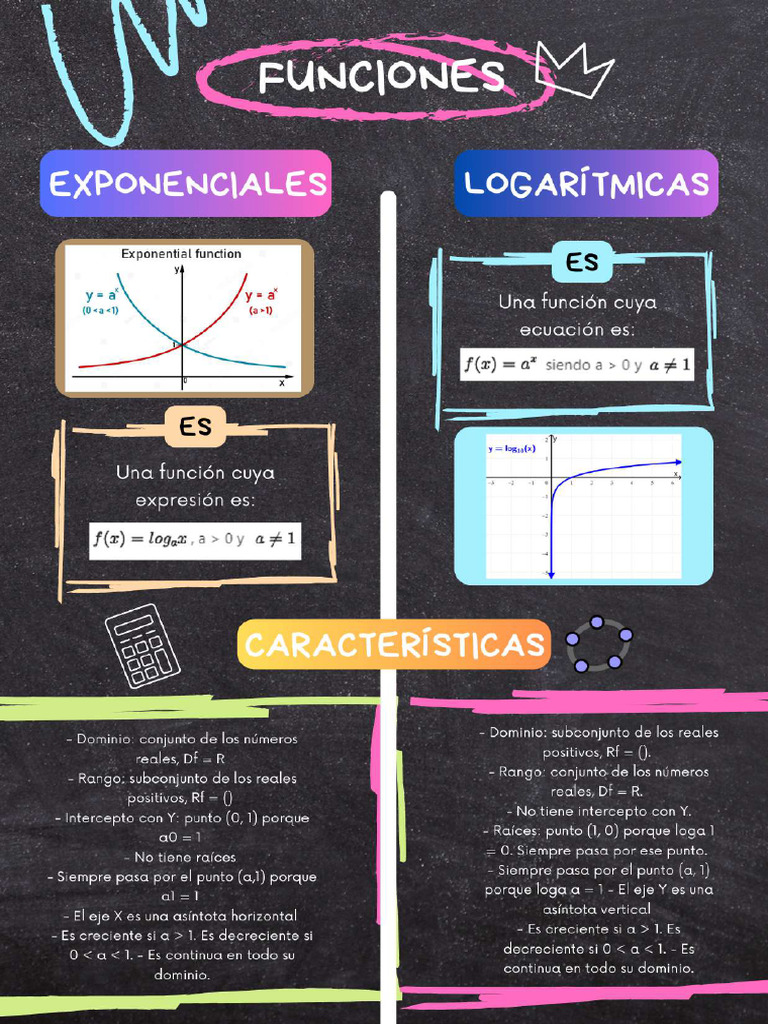 FUNCIONES
EXPONENCIALES
Exponential function
y
y = a^x
(0 < a < 1)
y = a^x
(a > 1)
1
0
x
ES
Una función cuya
expresión es:
f(x) = log_a x , a > 0 y a ≠ 1
LOGARÍTMICAS
ES
Una función cuya
ecuación es:
f(x) = a^x siendo a > 0 y a ≠ 1
y = log₁₀(x)
y
x
2
1
-3 -2 -1 0 1 2 3 4 5 6
-1
-2
-3
-4
-5
CARACTERÍSTICAS
- Dominio: conjunto de los números
reales, Df = R
- Rango: subconjunto de los reales
positivos, Rf = ()
- Intercepto con Y: punto (0, 1) porque
a0 = 1
- No tiene raíces
- Siempre pasa por el punto (a,1) porque
a1 = 1
- El eje X es una asíntota horizontal
- Es creciente si a > 1. Es decreciente si
0 < a < 1. - Es continua en todo su
dominio.
- Dominio: subconjunto de los reales
positivos, Rf = ().
- Rango: conjunto de los números
reales, Df = R.
- No tiene intercepto con Y.
- Raíces: punto (1, 0) porque loga 1
= 0. Siempre pasa por ese punto.
- Siempre pasa por el punto (a, 1)
porque loga a = 1 - El eje Y es una
asíntota vertical
- Es creciente si a > 1. Es
decreciente si 0 < a < 1. - Es
continua en todo su dominio.